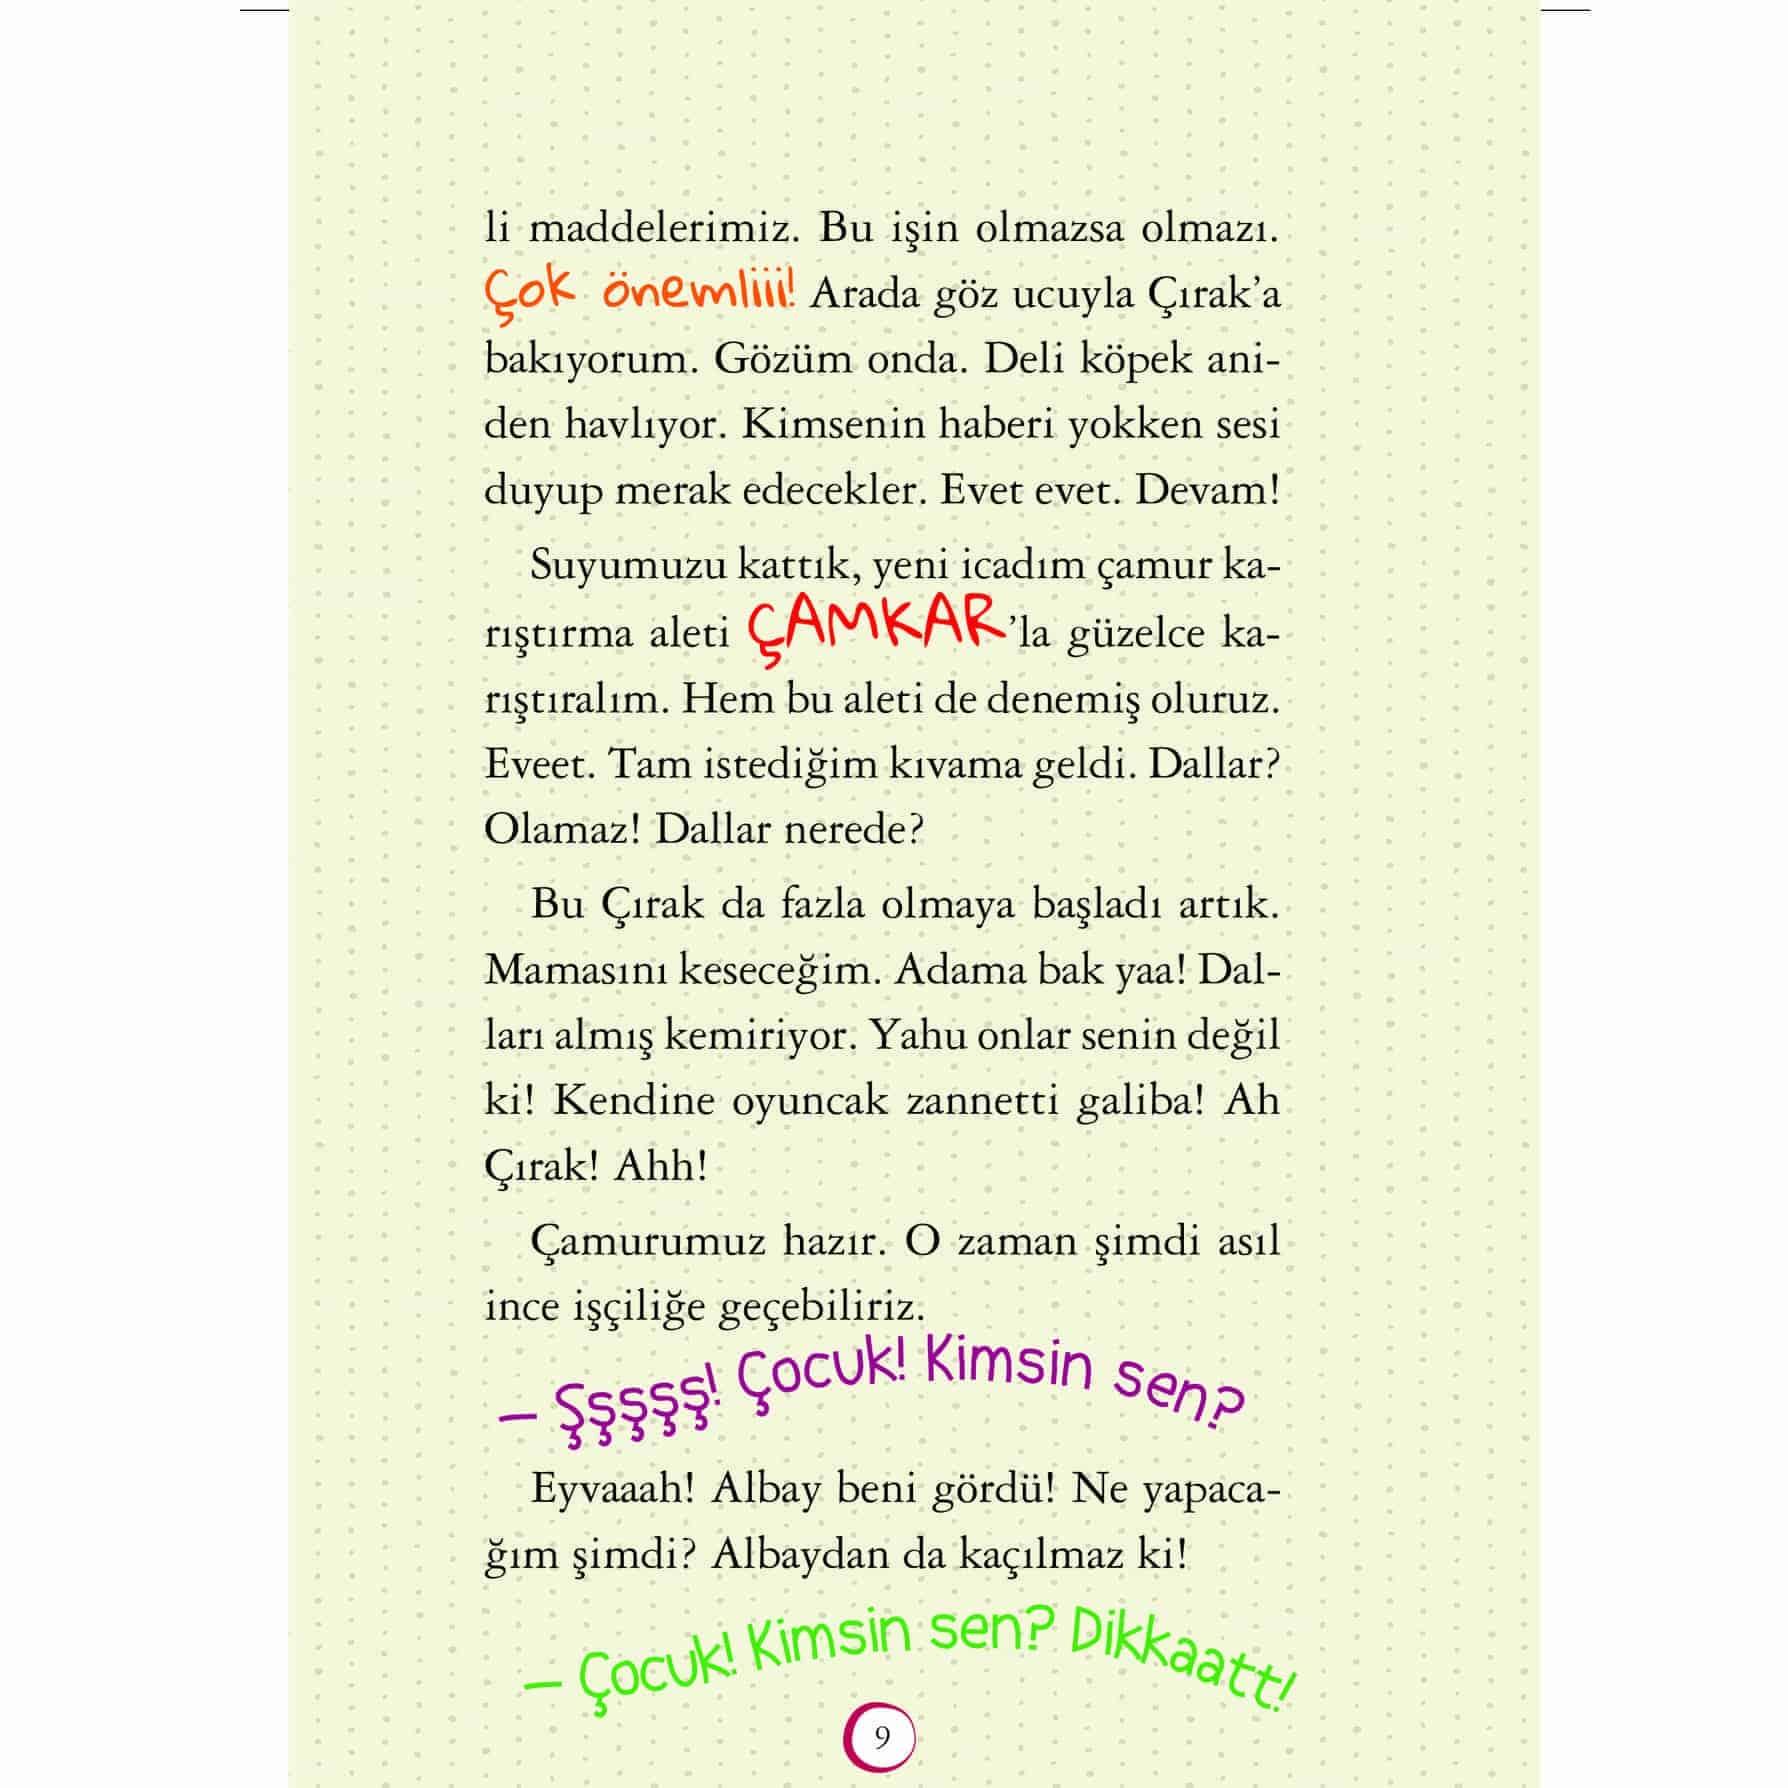 li maddelerimiz. Bu işin olmazsa olmazı.
Çok önemliii! Arada göz ucuyla Çırak’a
bakıyorum. Gözüm onda. Deli köpek ani-
den havlıyor. Kimsenin haberi yokken sesi
duyup merak edecekler. Evet evet. Devam!
Suyumuzu kattık, yeni icadım çamur ka-
rıştırma aleti ÇAMKAR’la güzelce ka-
rıştıralım. Hem bu aleti de denemiş oluruz.
Eveet. Tam istediğim kıvama geldi. Dallar?
Olamaz! Dallar nerede?
Bu Çırak da fazla olmaya başladı artık.
Mamasını keseceğim. Adama bak yaa! Dal-
ları almış kemiriyor. Yahu onlar senin değil
ki! Kendine oyuncak zannetti galiba! Ah
Çırak! Ahh!
Çamurumuz hazır. O zaman şimdi asıl
ince işçiliğe geçebiliriz.
– Şşşşş! Çocuk! Kimsin sen?
Eyvaaah! Albay beni gördü! Ne yapaca-
ğım şimdi? Albaydan da kaçılmaz ki!
– Çocuk! Kimsin sen? Dikkaatt!
9